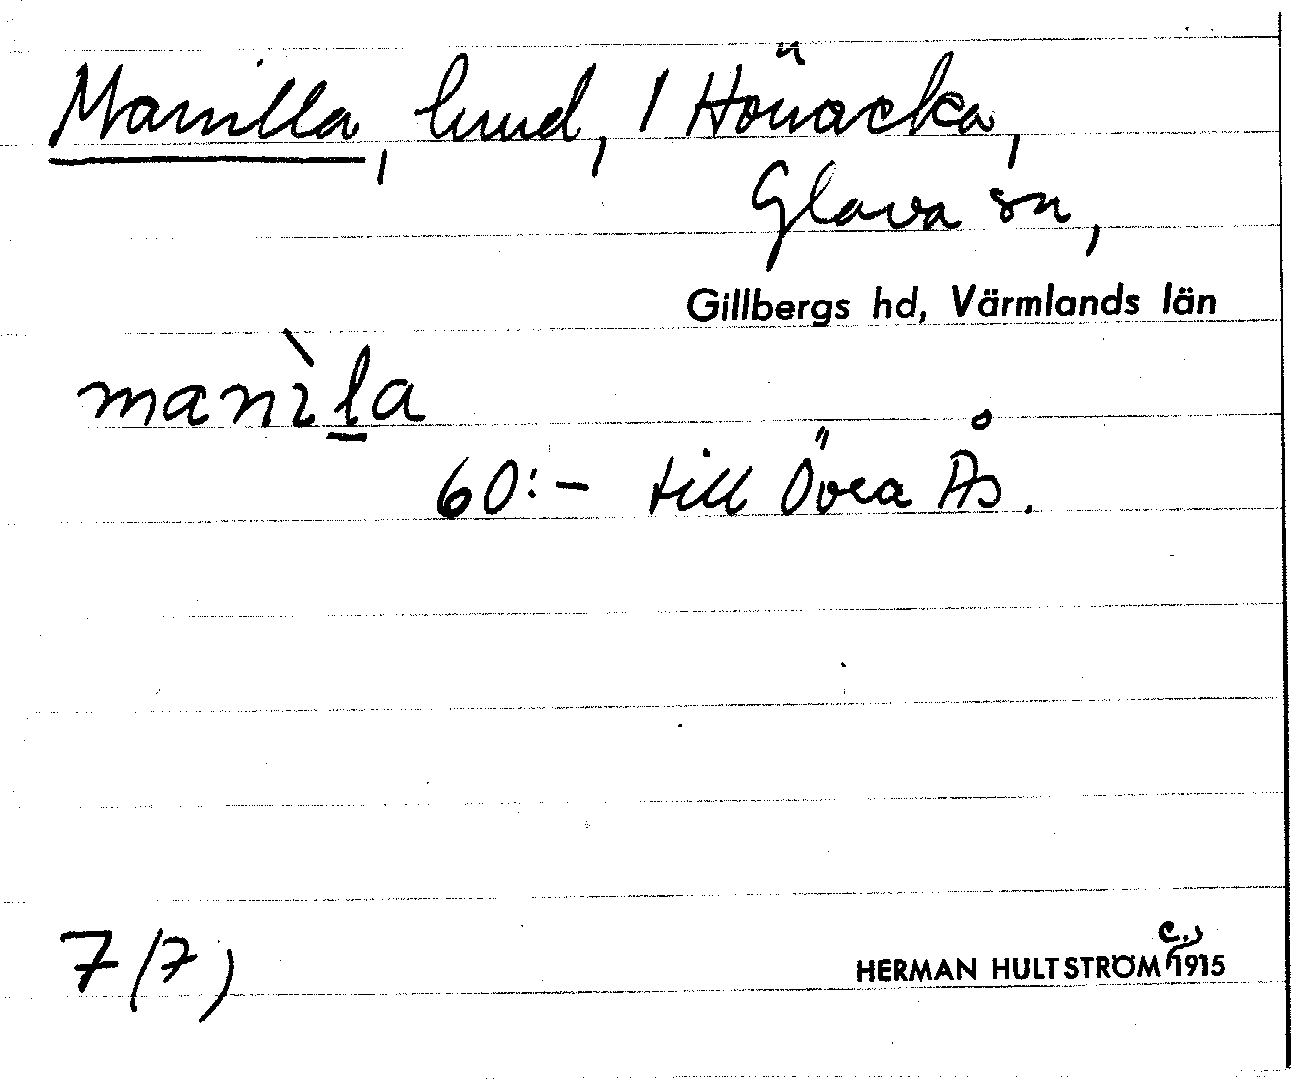 Manilla, lund, 1 Hönacka,
Glava sn,
Gillbergs hd, Värmlands län
manìla
60:- till Övra Ås.
7(7)
HERMAN HULTSTRÖM c., 1915